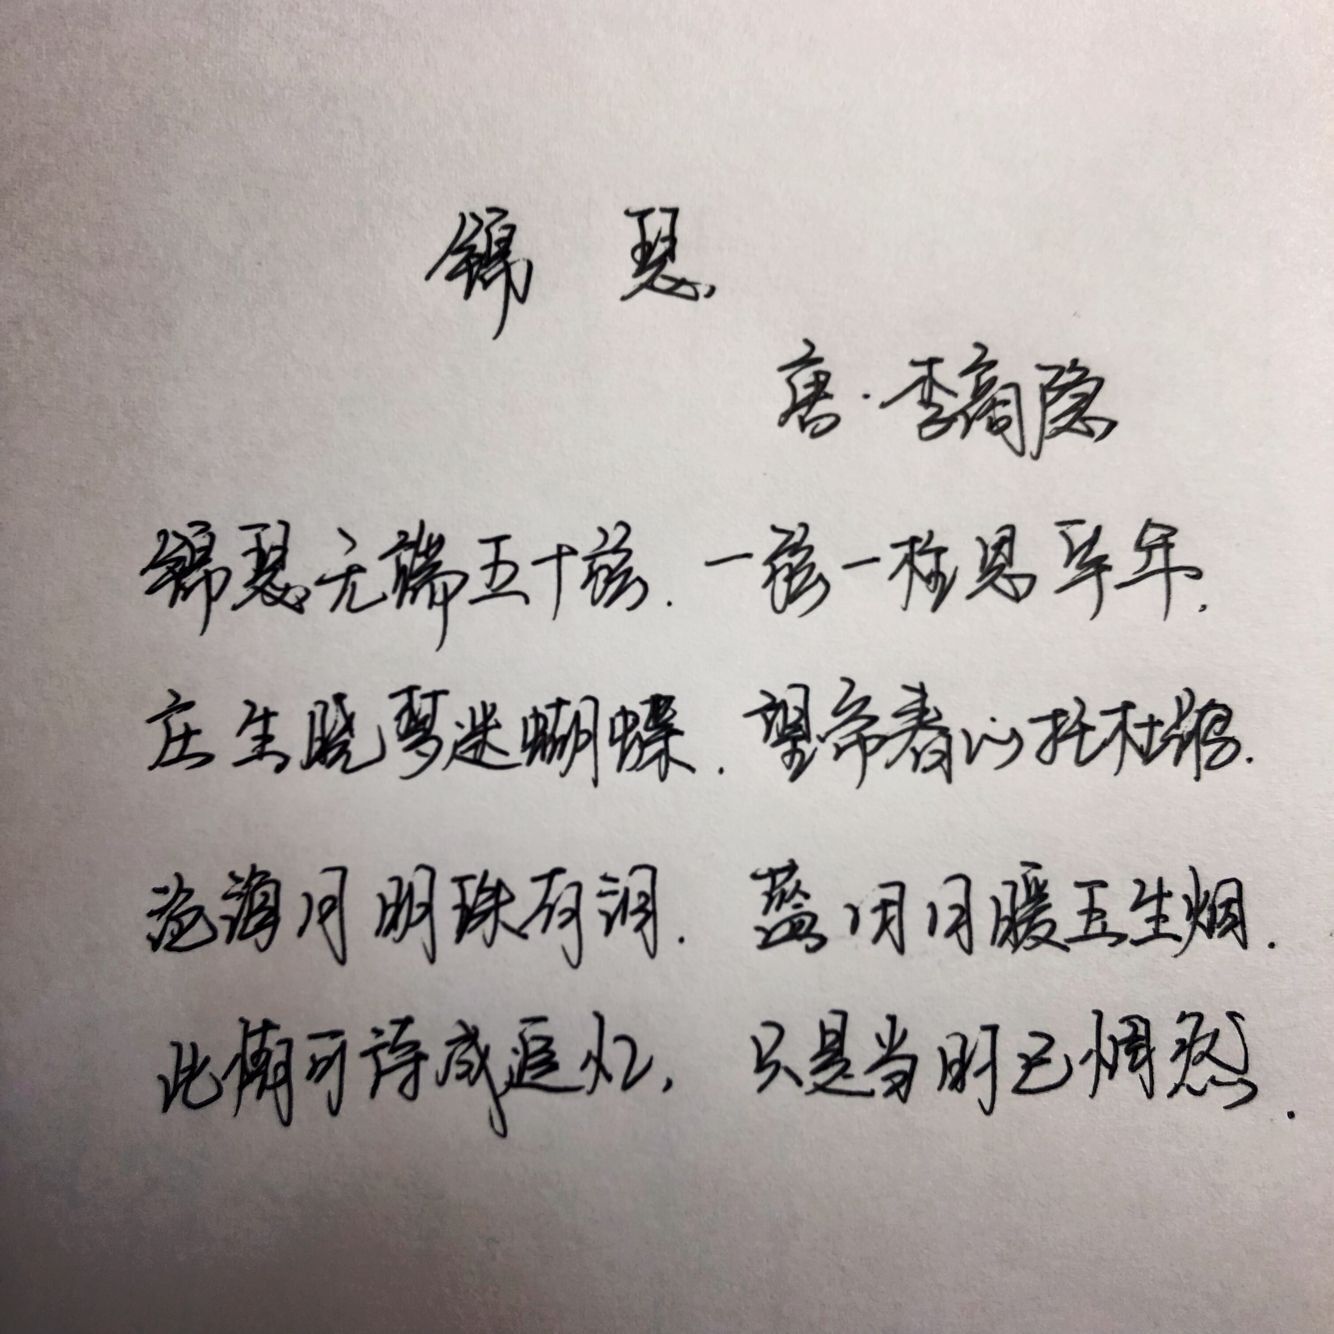 锦瑟
唐·李商隐
锦瑟无端五十弦.一弦一柱思华年.
庄生晓梦迷蝴蝶.望帝春心托杜鹃.
沧海月明珠有泪.蓝田日暖玉生烟.
此情可待成追忆,只是当时已惘然.